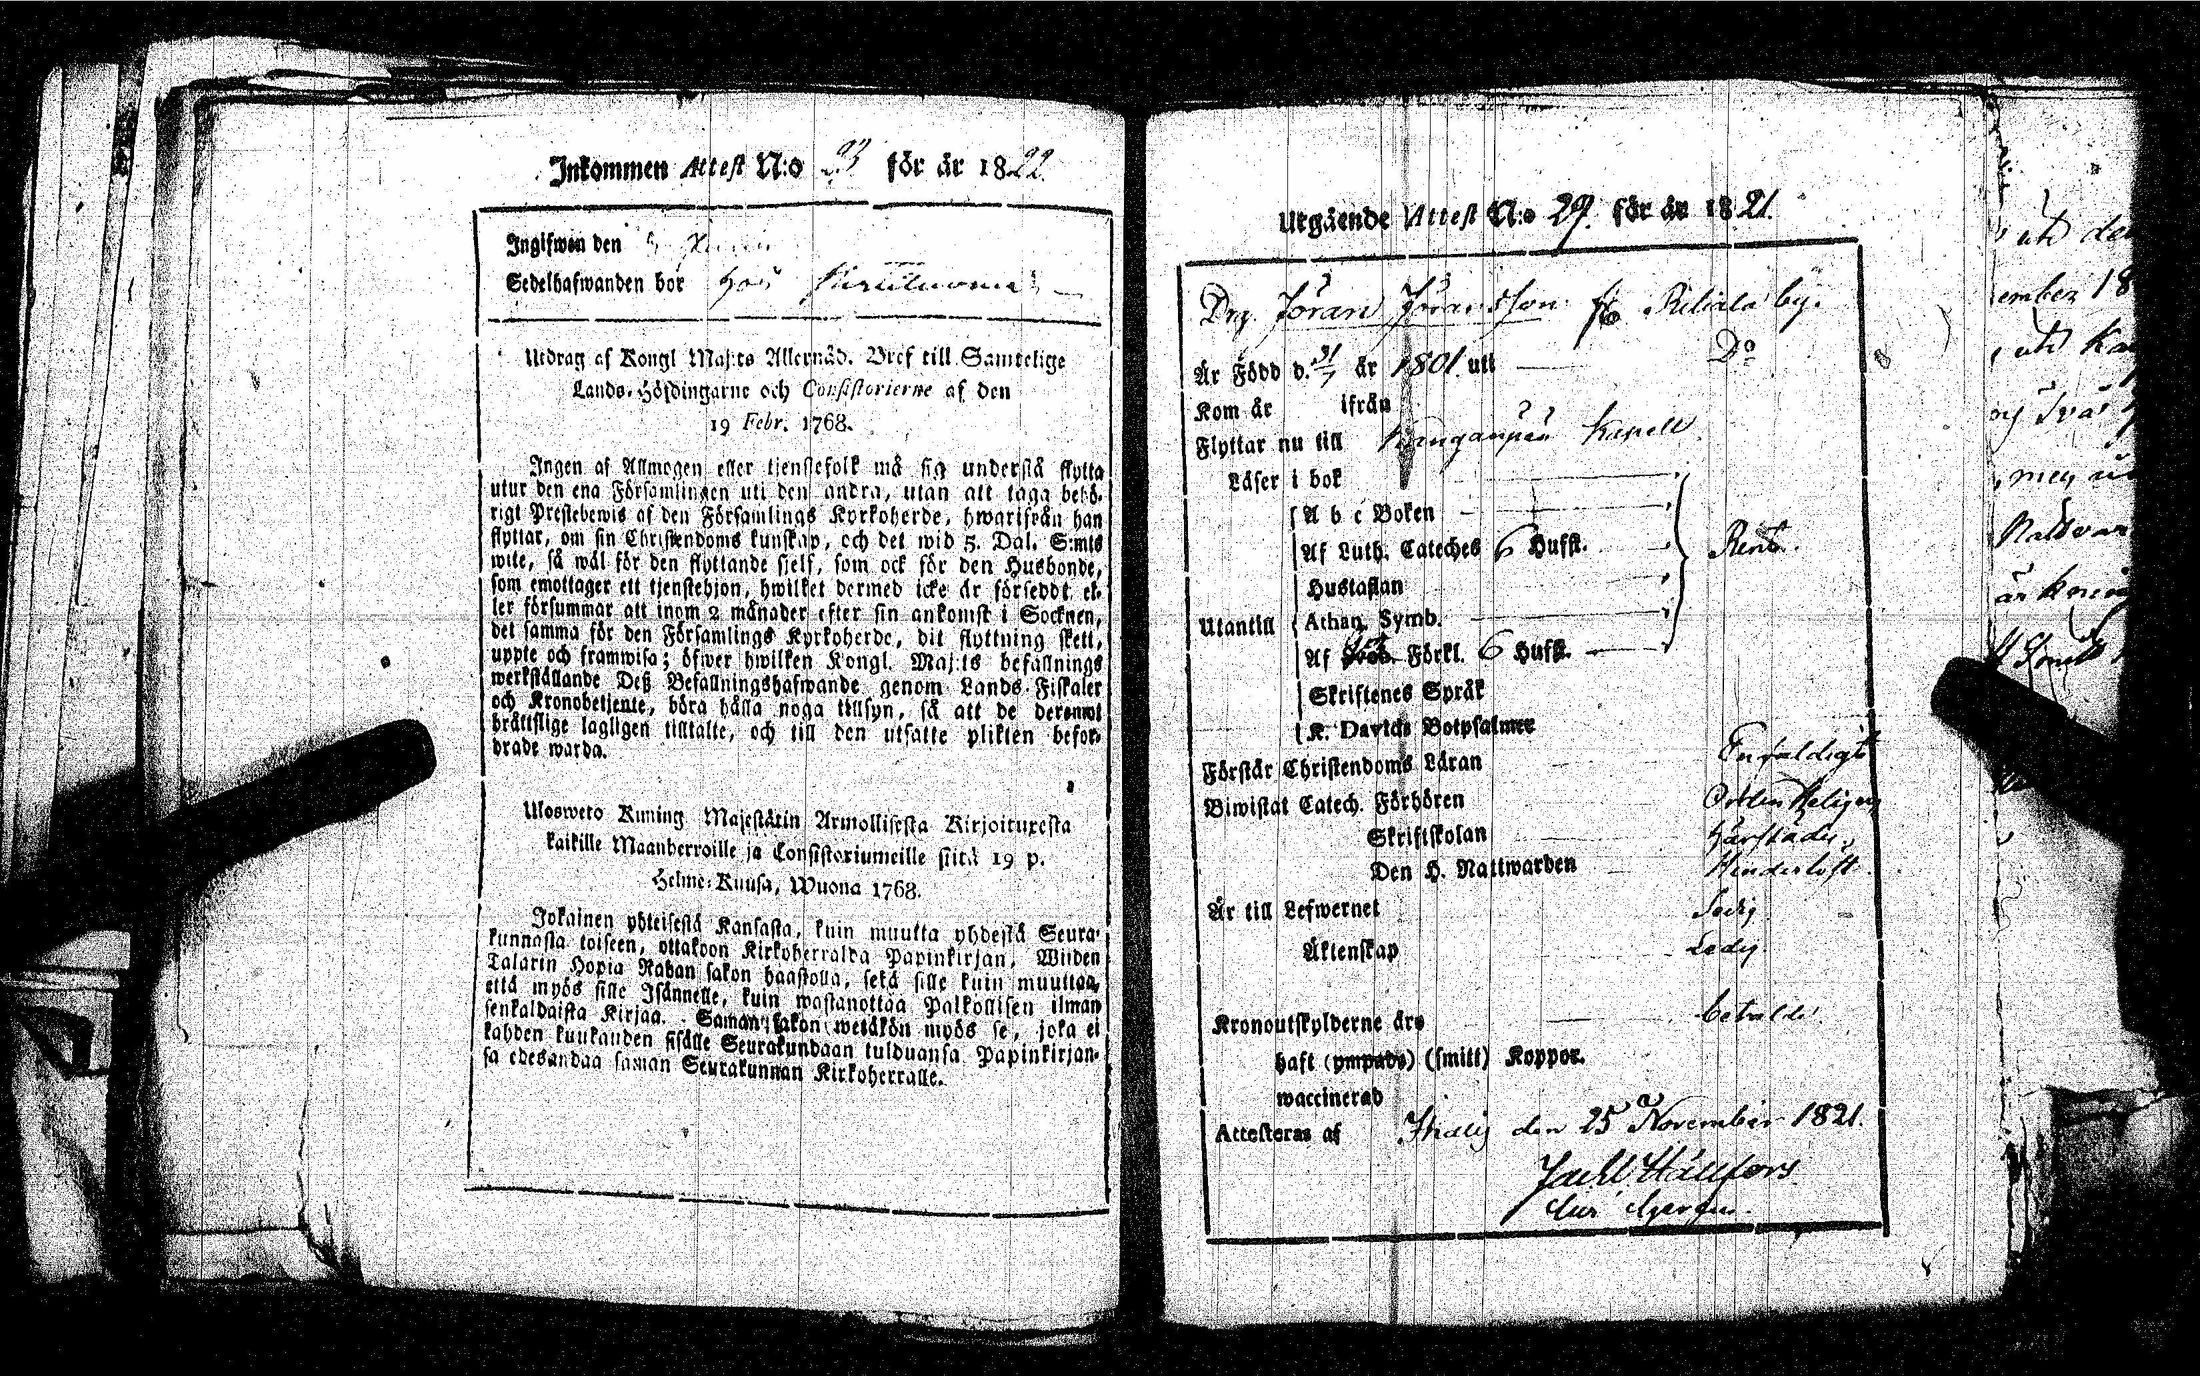 Inkommen Attest N:o 23 för år 1822.
Ingifwen den
Sedelhafwanden bor hos
Utdrag af Kongl Maj:ts Allernåd. Bref till Samtelige
Lands-Höfdingarne och Consistorierne af den
19 Febr. 1768.
Ingen af Allmogen eller tjenstefolk må sig understå flytta
utur den ena Församlingen uti den andra, utan att taga behö-
rigt Prestebewis af den Församlings Kyrkoherde, hwarifrån han
flyttar, om sin Christendoms kunskap, och det wid 5. Dal. S:mts
wite, så wäl för den flyttande sjelf, som ock för den Husbonde,
som emottager ett tjenstehjon, hwilket dermed icke är försedt, el-
ler försummar att inom 2 månader efter sin ankomst i Socknen,
det samma för den Församlings Kyrkoherde, dit flyttning skett,
uppte och framwisa; öfwer hwilken Kongl. Maj:ts befallnings
werkställande Deß Befallningshafwande genom Lands-Fiskaler
och Kronobetjente, böra hålla noga tillsyn, så att de deremot
bråttslige lagligen tilltalte, och till den utsatte plikten befor-
drade warda.
Ulosweto Kuning Majestätin Armollisesta Kirjoituxesta
kaikille Maanherroille ja Consistoriumeille siitä 19 p.
Helme-Kuusa, Wuona 1768.
Jokainen yhteisestä Kansasta, kuin muutta yhdestä Seura-
kunnasta toiseen, ottakoon Kirkoherralda Papinkirjan, Wiiden
Talarin Hopia Rahan sakon haastolla, sekä sille kuin muuttaa,
että myös sille Isännelle, kuin wastanottaa Palkollisen ilman
senkaldaista Kirjaa. Saman sakon wetäkön myös se, joka ei
kahden kuukauden sisälle Seurakundaan tulduansa Papinkirjan-
sa edesandaa saman Seurakunnan Kirkoherralle.
Utgående Attest N:o 29. för år 1821.
Drg. Jöran Jöransson by.
Är Född d. 31/7 år 1801. uti Do
Kom år ifrån
Flyttar nu till Kapell
Läser i bok
A b c Boken
Af Luth. Cateches 6 Hufst. Rent.
Hustaflan
Utantill Athan. Symb.
Af Förkl. 6 Hufst.
Skriftenes Språk
K. Davids Botpsalmer
Förstår Christendoms Läran Enfaldigt
Biwistat Catech. Förhören
Skriftskolan
Den H. Nattwarden
Är till Lefwernet Sedig
Äktenskap Ledig.
Kronoutskylderne äro betalde.
haft (ympade) (smitt) Koppor.
waccinerad
Attesteras af den 25 November 1821.
Hällfors